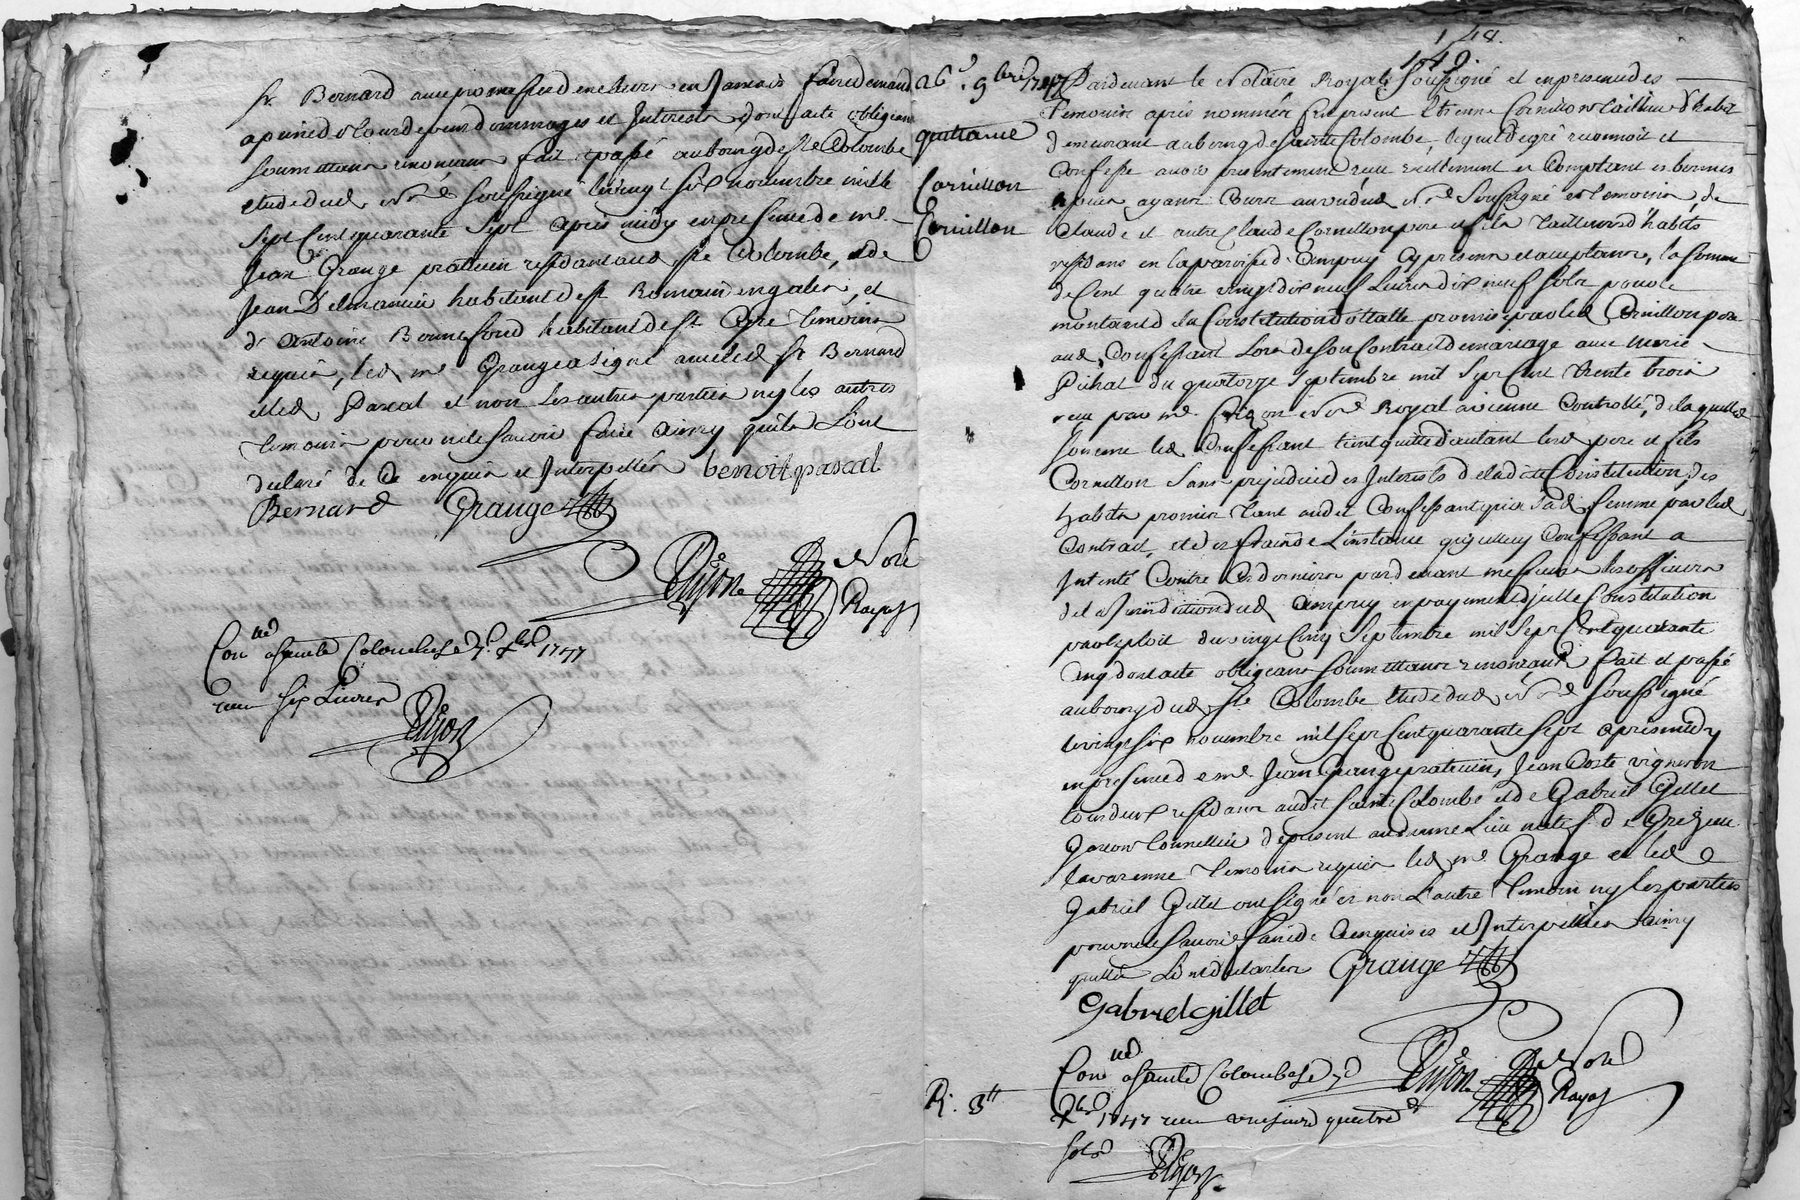 Sr. Bernard avec promesse de ne leurs en Jamais faire demande
a peine de tous depens dommages et Interests dont acte obligeant
soumettant renonceant fait et passé au bourg de Ste Colombe
etude dud. no.re soussigné le vingt six novembre mille
sept Cent quarante sept apres midy en presence de me.
Jean Grange praticien residant aud. Ste Colombe, et de
Jean habitant de St Romain en galier, et
d'antoine Bonnefond habitant de St Cyre temoins
requis, led. me. Grange a signé avec led. Sr. Bernard
et led. Pascal et non les autres parties ny les autres
temoins pour ne scavoir faire ainsy quils L'ont
declaré de Ce enquis et Interpellés benoit pascal
Bernard Grange
Dujon no.re
Royal
Con.lé a sainte Colombe le 7e. xbre 1747
receu six Livres
Dujon
148.
149.
26e. 9bre 1747
quittance
Cornillon
Cornillon
Pardevant le Notaire Royal soussigné et en presence des
temoins apres nommés fut present Etienne Cornillon tailleur d'habit
demeurant au bourg de sainte Colombe, lequel de gré reconnoit et
Confesse avoir presentement receu reellement et Comptant en bonnes
especes ayant Cours au veu dud. no.re soussigné et temoins de
Claude et autre Claude Cornillon pere et fils tailleurs d'habits
residans en la paroisse d'ampuy cy presens et acceptans, la somme
de Cent quatre vingt dix neuf Livres dix neuf sols pour le
montant de la Constitution dottalle promise par led. Cornillon pere
aud. Confessant Lors de son Contract de mariage avec marie
Pichat du quatorze septembre mil sept Cent trente trois
receu par me. no.re Royal a vienne Controllé, de laquelle
somme led. Confessant tient quitte d'autant lesd. pere et fils
Cornillon sans prejudice des Interests de ladite Constitution, des
habits promis tant audit Confessant qu'a sad. femme par led.
Contract, et des fraix de L'instance que led. Confessant a
Intenté Contre Ces derniers pardevant messieurs les officiers
de la Jurisdiction dud. ampuy en payement de lad. Constitution
par exploit du vingt Cinq septembre mil sept Cent quarante
Cinq dont acte obligeant soumettant renonceant fait et passé
au bourg dud. Ste Colombe etude dud. no.re soussigné
le vingt six novembre mil sept Cent quarante sept apres midy
en presence de me. Jean Grange praticien, Jean Coste vigneron
tous deux residans audit sainte Colombe et de Gabriel Gillet
Garcon tonnellier de present audit meme Lieu natif de Grezieu
lavarenne temoins requis led. me. Grange et led.
Gabriel Gillet ont signé et non L'autre temoin ny les parties
pour ne scavoir faire de Ce enquis et Interpellés ainsy
quils L'ont declaré Grange
Gabriel Gillet
Dujon no.re
Royal
Con.lé a sainte Colombe le 7e
xbre 1747 receu vingt quatre
sols
Dujon
R. 3tt